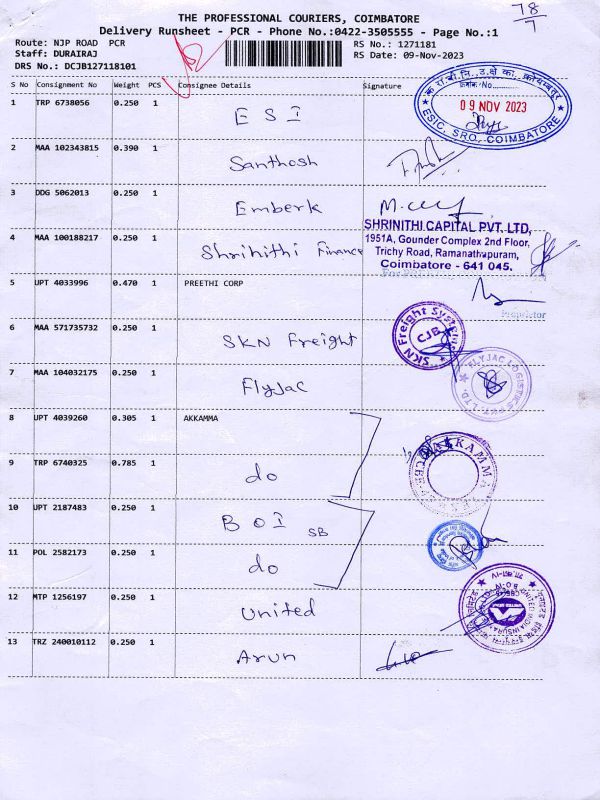 78
7
THE PROFESSIONAL COURIERS, COIMBATORE
Delivery Runsheet - PCR - Phone No.:0422-3505555 - Page No.:1
Route: NJP ROAD PCR
RS No.: 1271181
Staff: DURAIRAJ
RS Date: 09-Nov-2023
DRS No.: DCJB127118101
S No Consignment No Weight PCS Consignee Details Signature
1 TRP 6738056 0.250 1 ESI
09 NOV 2023
ESIC, SRO, COIMBATORE
2 MAA 102343815 0.390 1 Santhosh
3 DDG 5062013 0.250 1 Emberk
4 MAA 100188217 0.250 1 Shrihithi Finance
SHRINITHI CAPITAL PVT. LTD,
1951A, Gounder Complex 2nd Floor,
Trichy Road, Ramanathapuram,
Coimbatore - 641 045.
5 UPT 4033996 0.470 1 PREETHI CORP
Proprietor
6 MAA 571735732 0.250 1 SKN Freight
SKN Freight Systems
CJB
7 MAA 104032175 0.250 1 FlyJac
FLYJAC LOGISTICS PVT. LTD.
8 UPT 4039260 0.305 1 AKKAMMA
9 TRP 6740325 0.785 1 do
AKKAMMA
10 UPT 2187483 0.250 1 BOI SB
11 POL 2582173 0.250 1 do
12 MTP 1256197 0.250 1 United
13 TRZ 240010112 0.250 1 Arun